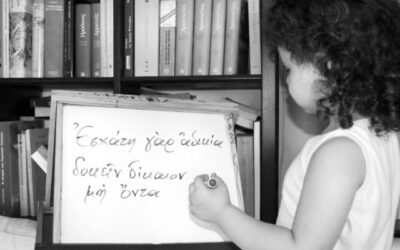 Ἐσχάτη γὰρ ἀδικία
δοκεῖν δίκαιον
μὴ ὄντα